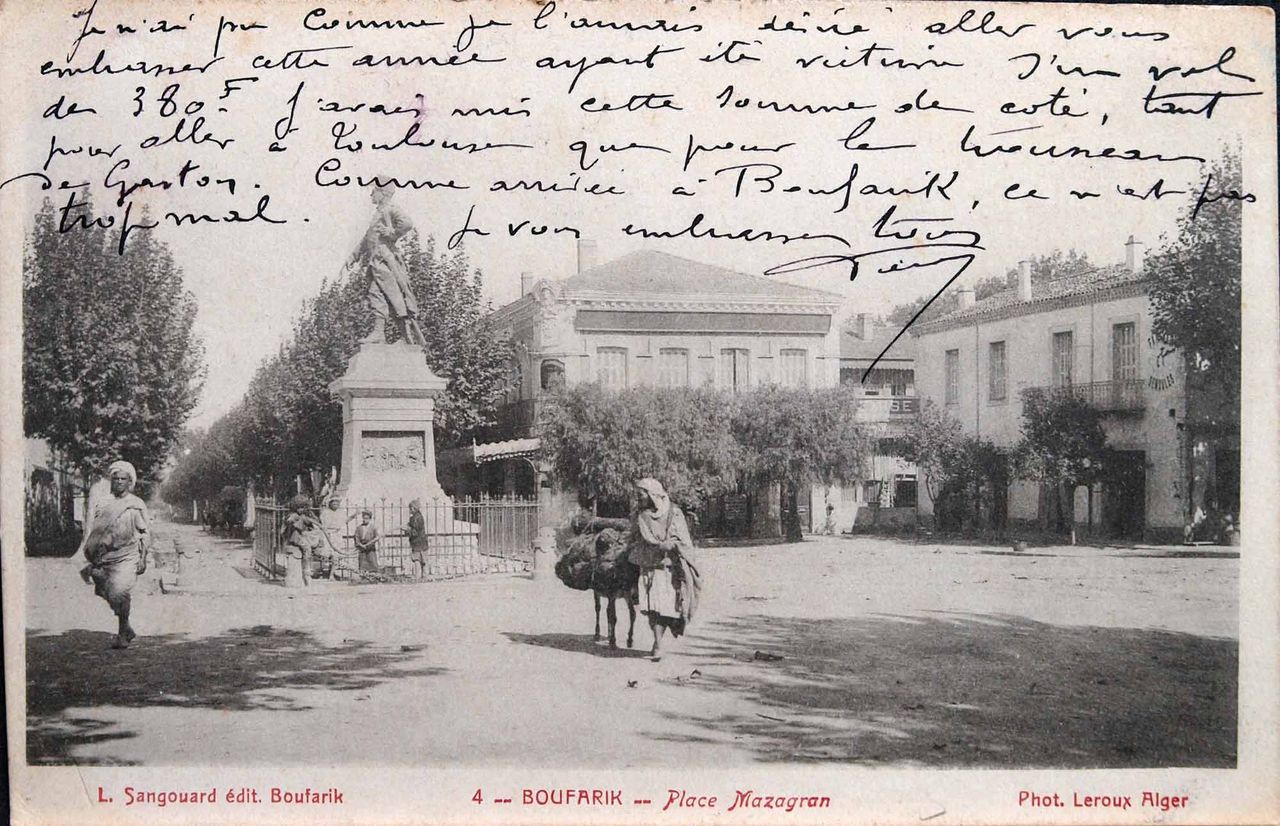 Je n'ai pu comme je l'aurais désiré aller vous
embrasser cette année ayant été victime d'un vol
de 380F. J'avais mis cette somme de coté, tant
pour aller à Toulouse que pour le trousseau
de Gaston. Comme arrivée à Boufarik, ce n'est pas
trop mal. Je vous embrasse tous
L. Sangouard édit. Boufarik
4 -- BOUFARIK -- Place Mazagran
Phot. Leroux Alger